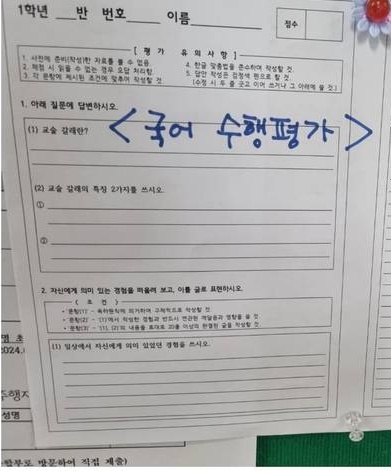 1학년 ___반 번호___ 이름___
점수
[ 평 가 유 의 사 항 ]
1. 사전에 준비(작성)한 자료를 볼 수 없음.
2. 채점 시 읽을 수 없는 경우 오답 처리함.
3. 각 문항에 제시된 조건에 맞추어 작성할 것.
4. 한글 맞춤법을 준수하여 작성할 것.
5. 답안 작성은 검정색 펜으로 할 것.
(수정 시 두 줄 긋고 이어 쓰거나 그 아래에 쓸 것.)
1. 아래 질문에 답변하시오.
<국어 수행평가>
(1) 교술 갈래란?
(2) 교술 갈래의 특징 2가지를 쓰시오.
①
②
2. 자신에게 의미 있는 경험을 떠올려 보고, 이를 글로 표현하시오.
( 조 건 )
• '문항(1)' - 육하원칙에 의거하여 구체적으로 작성할 것
• '문항(2)' - (1)에서 작성한 경험과 반드시 연관된 깨달음과 영향을 쓸 것
• '문항(3)' - (1), (2)의 내용을 토대로 20줄 이상의 완결된 글을 작성할 것
(1) 일상에서 자신에게 의미 있었던 경험을 쓰시오.
2024.
성명
방문하여 직접 제출)